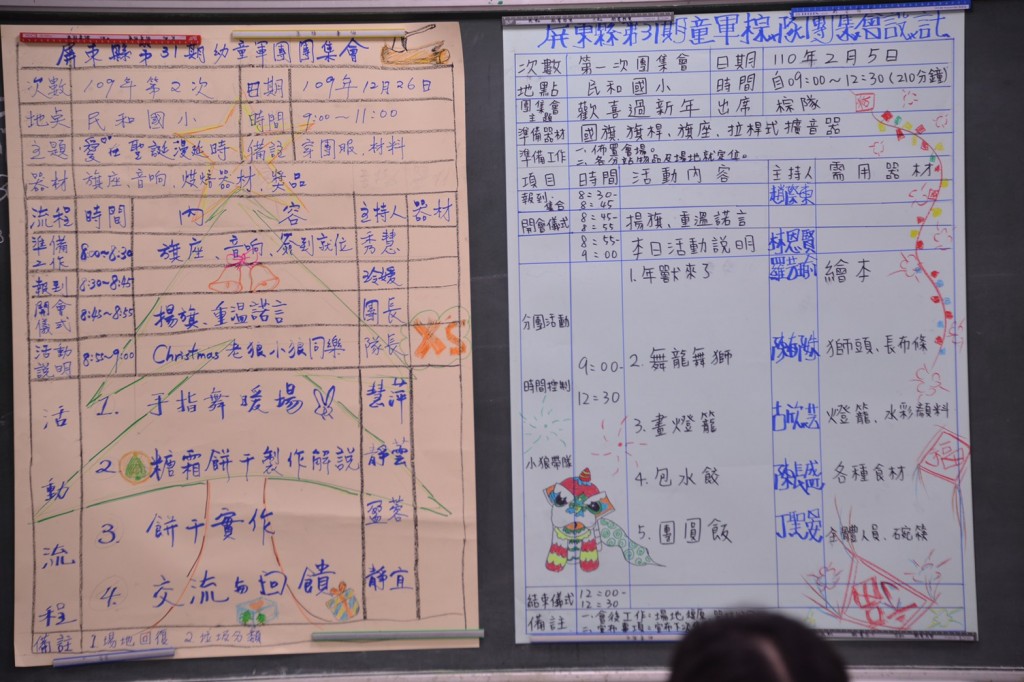 屏東縣第31期幼童軍團團集會
次數 109年第2次 日期 109年12月26日
地桌 民和國小 時間 9:00~11:00
主題 愛在聖誕漫延時 備註 穿團服、材料
器材 旗座、音响、烘焙器材、獎品
流程 時間 內容 主持人 器材
準備工作 8:00~8:30 旗座、音响、簽到就位 秀慧
報到 8:30~8:45 玲媛
開會儀式 8:45~8:55 揚旗、重溫諾言 團長
活動說明 8:55~9:00 Christmas 老狼小狼同樂 隊長
XS
活動流程
1. 手指舞暖場 慧萍
2. 糖霜餅干製作解說 靜雲
3. 餅干實作 盈蓉
4. 交流与回饋 靜宜
備註 1.場地回復 2.垃圾分類
屏東縣第31期童軍棕隊團集會設計
次數 第一次團集會 日期 110年2月5日
地點 民和國小 時間 自09:00~12:30(210分鐘)
團集會主題 歡喜過新年 出席 棕隊
準備器材 國旗、旗桿、旗座、拉桿式擴音器
準備工作 一、佈置會場。
二、各分站物品及場地就定位。
項目 時間 活動內容 主持人 需用器材
報到集合 8:30-8:45
開會儀式 8:45-8:55 揚旗、重溫諾言
8:55-9:00 本日活動說明 林恩賢
分團活動
時間控制
小狼帶隊
9:00-12:30
1.年獸來了 繪本
2.舞龍舞獅 獅頭、長布條
3.畫燈籠 燈籠、水彩顏料
4.包水餃 陳長盛 各種食材
5.團圓飯 全體人員、碗筷
福
結束儀式 12:00-12:30
備註 一、會後工作:場地復原